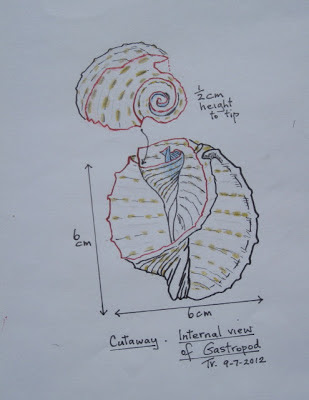 1/2 cm
height
to tip
6
cm
6cm
Cutaway - Internal view
of Gastropod
9-7-2012